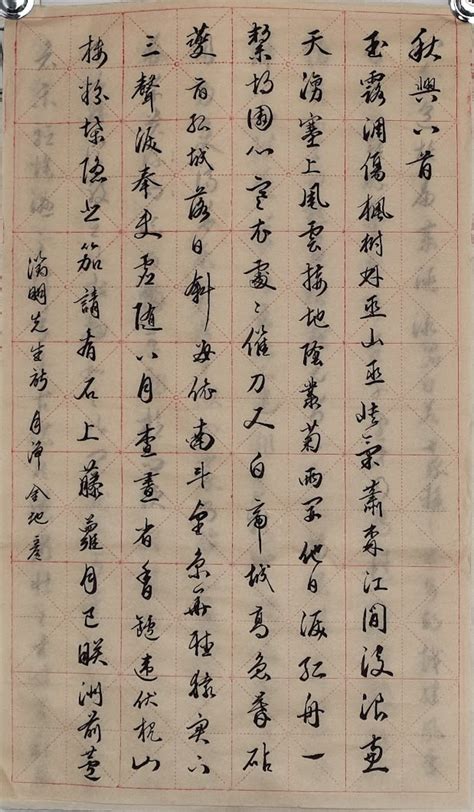 秋興八首
玉露凋傷楓樹林巫山巫峽氣蕭森江間波浪兼
天湧塞上風雲接地陰叢菊兩開他日淚孤舟一
繫故園心寒衣處〻催刀尺白帝城高急暮砧
夔府孤城落日斜每依南斗望京華聽猿實下
三聲淚奉使虛隨八月查畫省香爐違伏枕山
樓粉堞隱悲笳請看石上藤蘿月已映洲前蘆
明先生 月